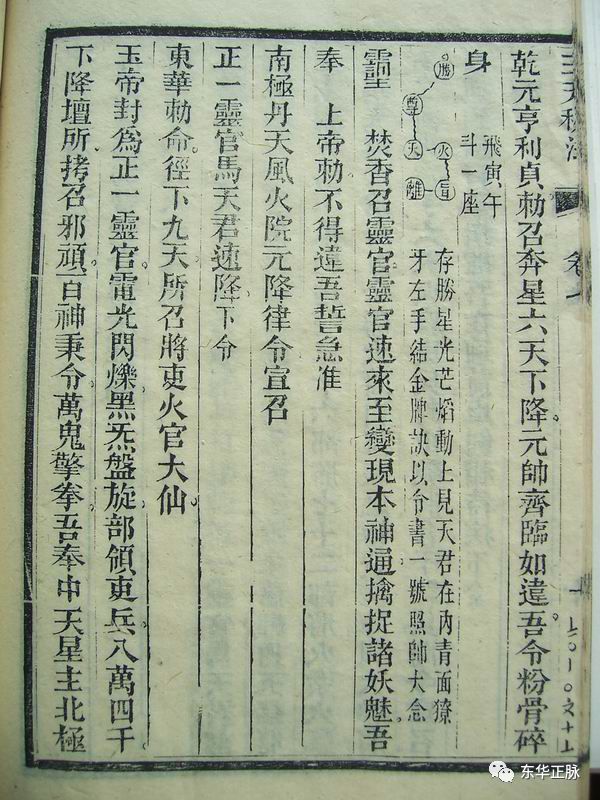 卷一
乾元亨利貞勅召奔星六天下降元帥齊臨如違吾令粉骨碎
身
飛寅午
斗一座
勝
尊
天
火
離
存勝星光芒焰動上見天君在內青面獠
牙左手結金牌訣以令書一號照帥大念
焚香召靈官靈官速來至變現本神通擒捉諸妖魅吾
奉　上帝勅不得違吾誓急准
南極丹天風火院元降律令宣召
正一靈官馬天君速降下令
東華勅命徑下九天所召將吏火官大仙
玉帝封爲正一靈官。電光閃爍。黑炁盤旋。部領吏兵。八萬四千
下降壇所。拷召邪頑。百神秉令。萬鬼擎拳。吾奉中天星主北極
东华正脉